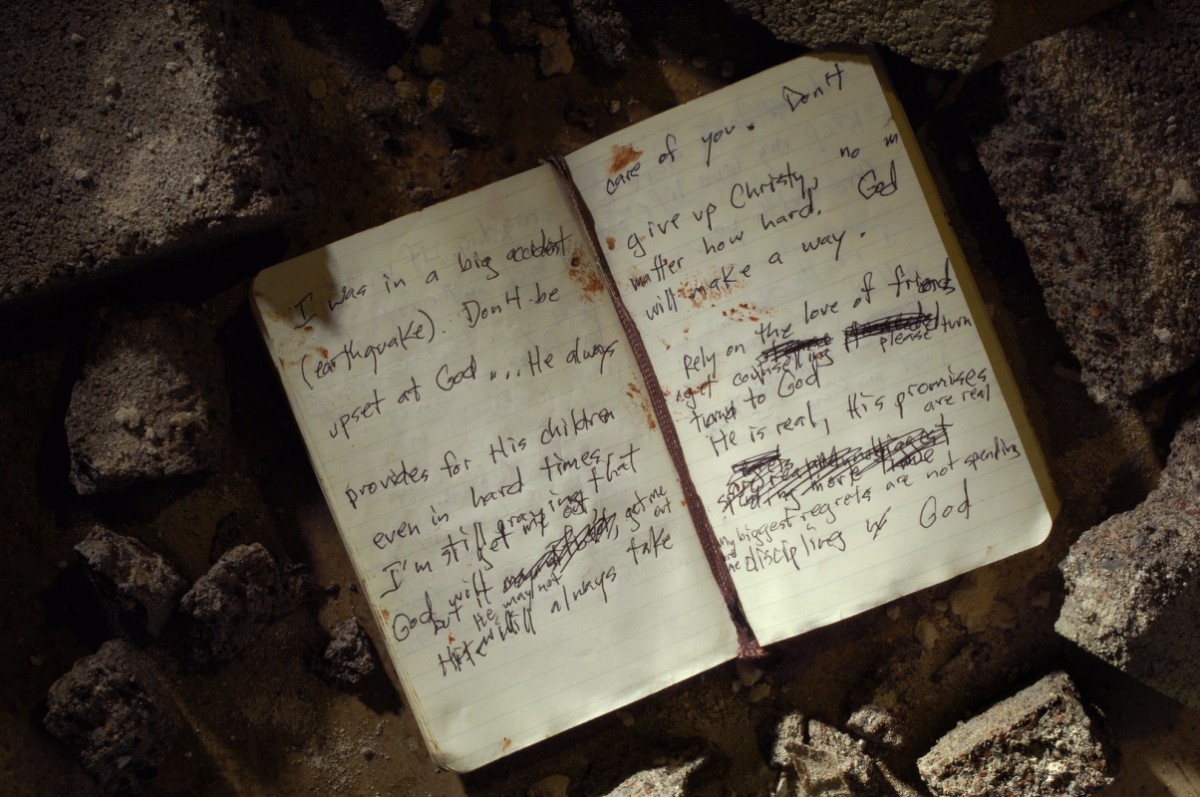 I was in a big accident
(earthquake). Don't be
upset at God .... He always
provides for His children
even in hard times.
I'm still praying that
God will get me out
but He may not get me out
He will always take
care of you. Don't
give up Christy, no m
matter how hard. God
will make a way.
Rely on the love of friends
get counselling please turn
turned to God
He is real, His promises
are real
my biggest regrets are not spending
discipling w/ God